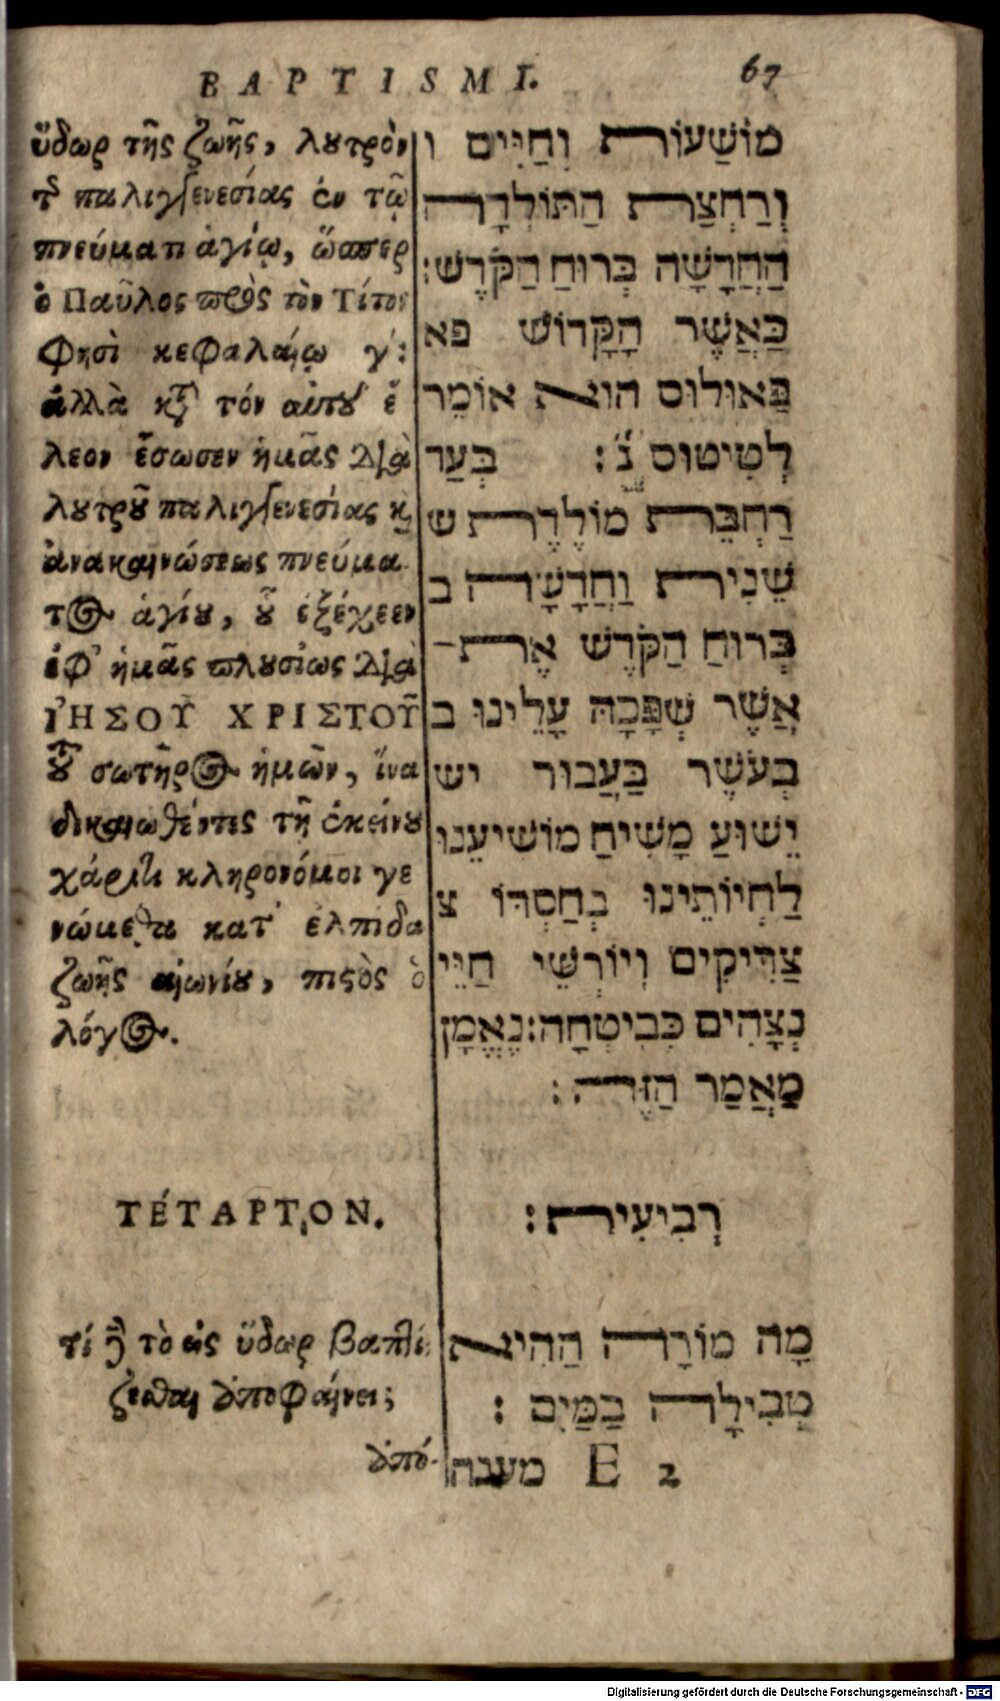 BAPTISMI. 67
ὕδωρ τῆς ζωῆς, λουτρὸν
τῆς παλιγγενεσίας ἐν τῷ
πνεύματι ἁγίῳ, ὥσπερ
ὁ Παῦλος πρὸς τὸν Τίτον
φησὶ κεφαλαίῳ γʹ:
ἀλλὰ κατὰ τόν αὑτοῦ ἔ
λεον ἔσωσεν ἡμᾶς διὰ
λουτροῦ παλιγγενεσίας καὶ
ἀνακαινώσεως πνεύμα
τος ἁγίου, οὗ ἐξέχεεν
ἐφ' ἡμᾶς πλουσίως διὰ
ἸΗΣΟΥ͂ ΧΡΙΣΤΟΥ͂
τοῦ σωτῆρος ἡμῶν, ἵνα
δικαιωθέντες τῇ ἐκείνου
χάριτι κληρονόμοι γε
νώμεθα κατ' ἐλπίδα
ζωῆς αἰωνίου, πιστὸς ὁ
λόγος.
ΤΈΤΑΡΤΟΝ.
τί δὲ τὸ εἰς ὕδωρ βαπτί
ζεσθαι ἀποφαίνει;
ἀπό-
מוֹשַׁעוֹת וְחַיִּים ו
וְרַחְצַת הַתּוֹלְדָה
הַחֲדָשָׁה בְּרוּחַ הַקֹּדֶשׁ:
כַּאֲשֶׁר הָקָּדוֹשׁ פא
פַּאוּלוּס הוּא אוֹמֵר
לְטִיטוּס ג֗: בְּעַד
רַחְבֵּת מוֹלֶדֶת ש
שֵׁנִית וַחֲדָשָׁה ב
בְּרוּחַ הַקֹּדֶשׁ אֶת־
אֲשֶׁר שְׁפָּכָהּ עָלֵינוּ ב
בְעֹשֶׁר בַּעֲבוּר יש
יֵשׁוּעַ מָשִׁיחַ מוֹשִׁיעֵנוּ
לַחְיוֹתֵינוּ בְחַסְדּוֹ צ
צַדִּיקִים וְיוֹרְשֵׁי חַיֵּי
נְצָחִים כְּבִיטְחָה: נֶאֱמָן
מַאֲמַר הַזֶּה:
רְבִיעִית:
מָה מוֹרָה הַהִיא
טְבִילָה בַּמַּיִם:
מענה E 2
Digitalisierung gefördert durch die Deutsche Forschungsgemeinschaft - DFG